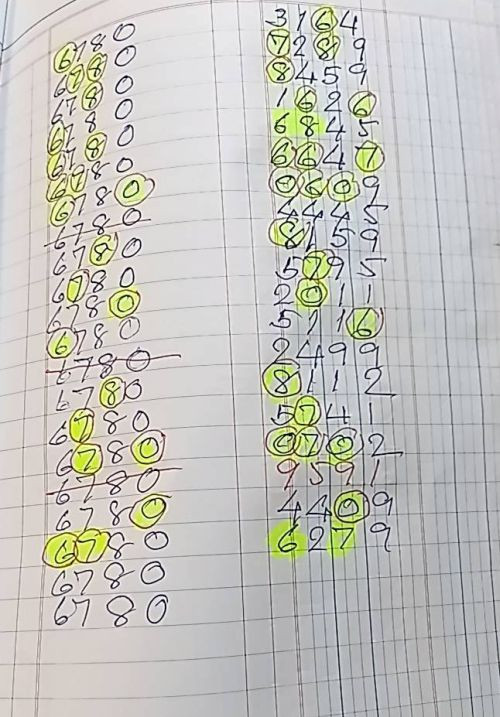 6780
6780
6780
6780
6780
6780
6780
6780
6780
6780
6780
6780
6780
6780
6780
6780
6780
6780
6780
6780
6780
3164
7289
8459
1626
6845
6647
0609
4445
8159
5795
2011
5116
2499
8112
5741
0702
9591
4409
6279